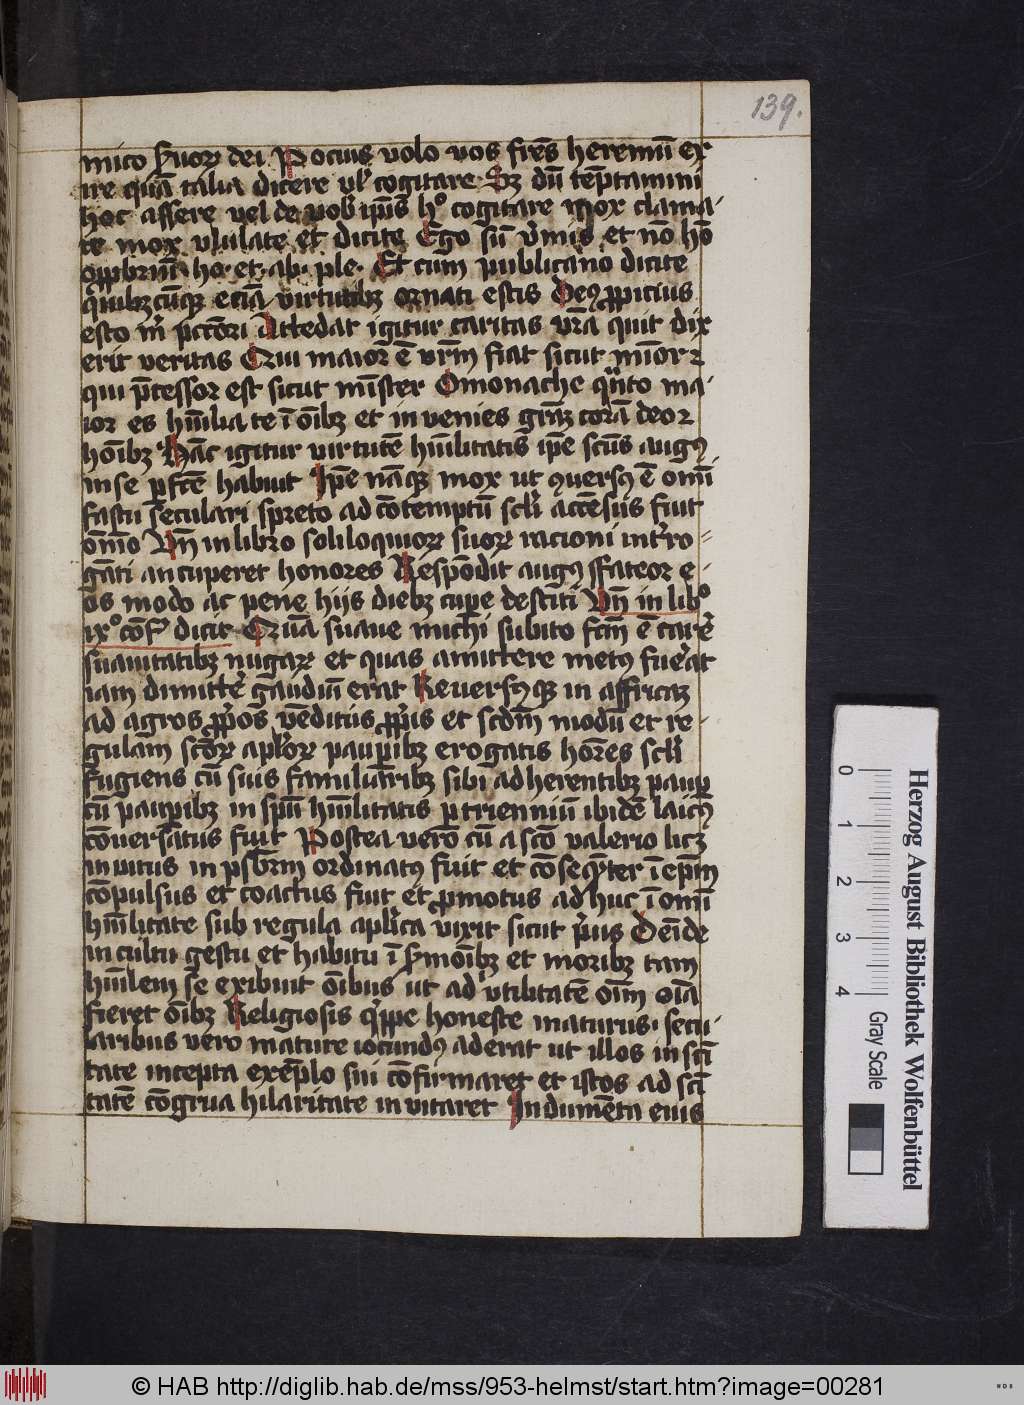 139.
mico s̄uoꝝ dei Pocius volo vos fr̄es heremū ex
ire quā talia dicere vl̓ cogitare Sꝫ dū tēptamini
hoc assere vel de vob̓ ip̄is h° cogitare mox clama-
te mox vlulate et dicite Ego sū v̓mis et nō hō
opp̄briū ho· et· ab· ple· Et cum publicano dicite
quibꝫcūqꝫ eciā virtutibꝫ ornati estis Deꝰ ꝓpicius
esto m̓ pctōri Attedat igitur caritas vr̄a quit dix
erit veritas Qui maior ē vr̄m fiat sicut mīor ⁊
qui p̄cessor est sicut mīster O monache quāto ma-
ior es hūilia te ī oībꝫ et in venies grāꝫ corā deo ⁊
hoībꝫ Hāc igitur virtutē hūilitatis ip̄e scūs augꝰ
in se ꝑfcē habuit Ip̄e nāqꝫ mox ut ꝯuersꝰ ē omī
fastu seculari spreto ad cōtemptū scl̓i accēsus fuit
om̄io Vn̄ in libro soliloquioꝝ suoꝝ racioni int̓ro-
gāti an cuperet honores Respōdit augꝰ ffateor e-
os modo ac pene hijs diebꝫ cupe destiti Vn̄ in lib°
ix° cōf̓ dicit Quā suaue michi subito fcm̄ ē carē
suauitatibꝫ nugaꝝ et quas amittere metꝰ fuerat
iam dimittē gaudiū erat Reuersꝰqꝫ in affricaꝫ
ad agros ꝓp̓os vēditus ꝓp̓is et scdm̄ modū et re-
gulam sctōꝝ apl̓oꝝ paupibꝫ erogatis honēs scl̓i
fugiens cū suis familiaribꝫ sibi ad herentibꝫ paup
cū paupibꝫ in spū hūilitatis ꝑ trienniū ibidē laicꝰ
cōuersatus fuit Postea vero cū a scō valerio licꝫ
inuitus in psb̄rm ordinatꝰ fuit et cōsequēter ī ep̄m
cōpulsus et coactus fuit et ꝓmotus adhuc ī omī
hūilitate sub regula apl̓ica vixit sicut p̓us Deīde
in cultu gestu et habitu ī s̄mōibꝫ et moribꝫ tam
hūilem se exibuit oībus ut ad vtilitatē oīm oīa
fieret oībꝫ Religiosis q̓ppe honeste maturus· secu-
laribus vero mature iocundꝰ aderat ut illos in scī
tate incepta exēplo sui cōfirmaret et istos ad scī
tatē cōgrua hilaritate in vitaret Indumēta eius
Herzog August Bibliothek Wolfenbüttel
0 1 2 3 4 Gray Scale
© HAB http://diglib.hab.de/mss/953-helmst/start.htm?image=00281